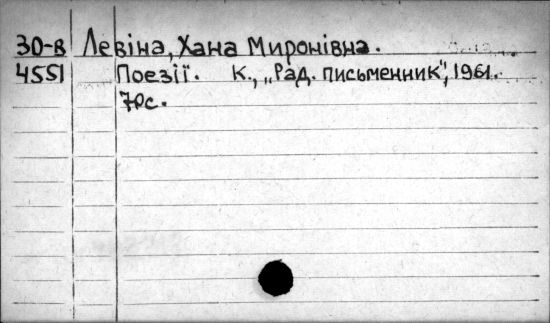 30-в Левіна, Хана Миронівна.
4551 Поезії. К., „Рад. письменник", 1961.
70с.